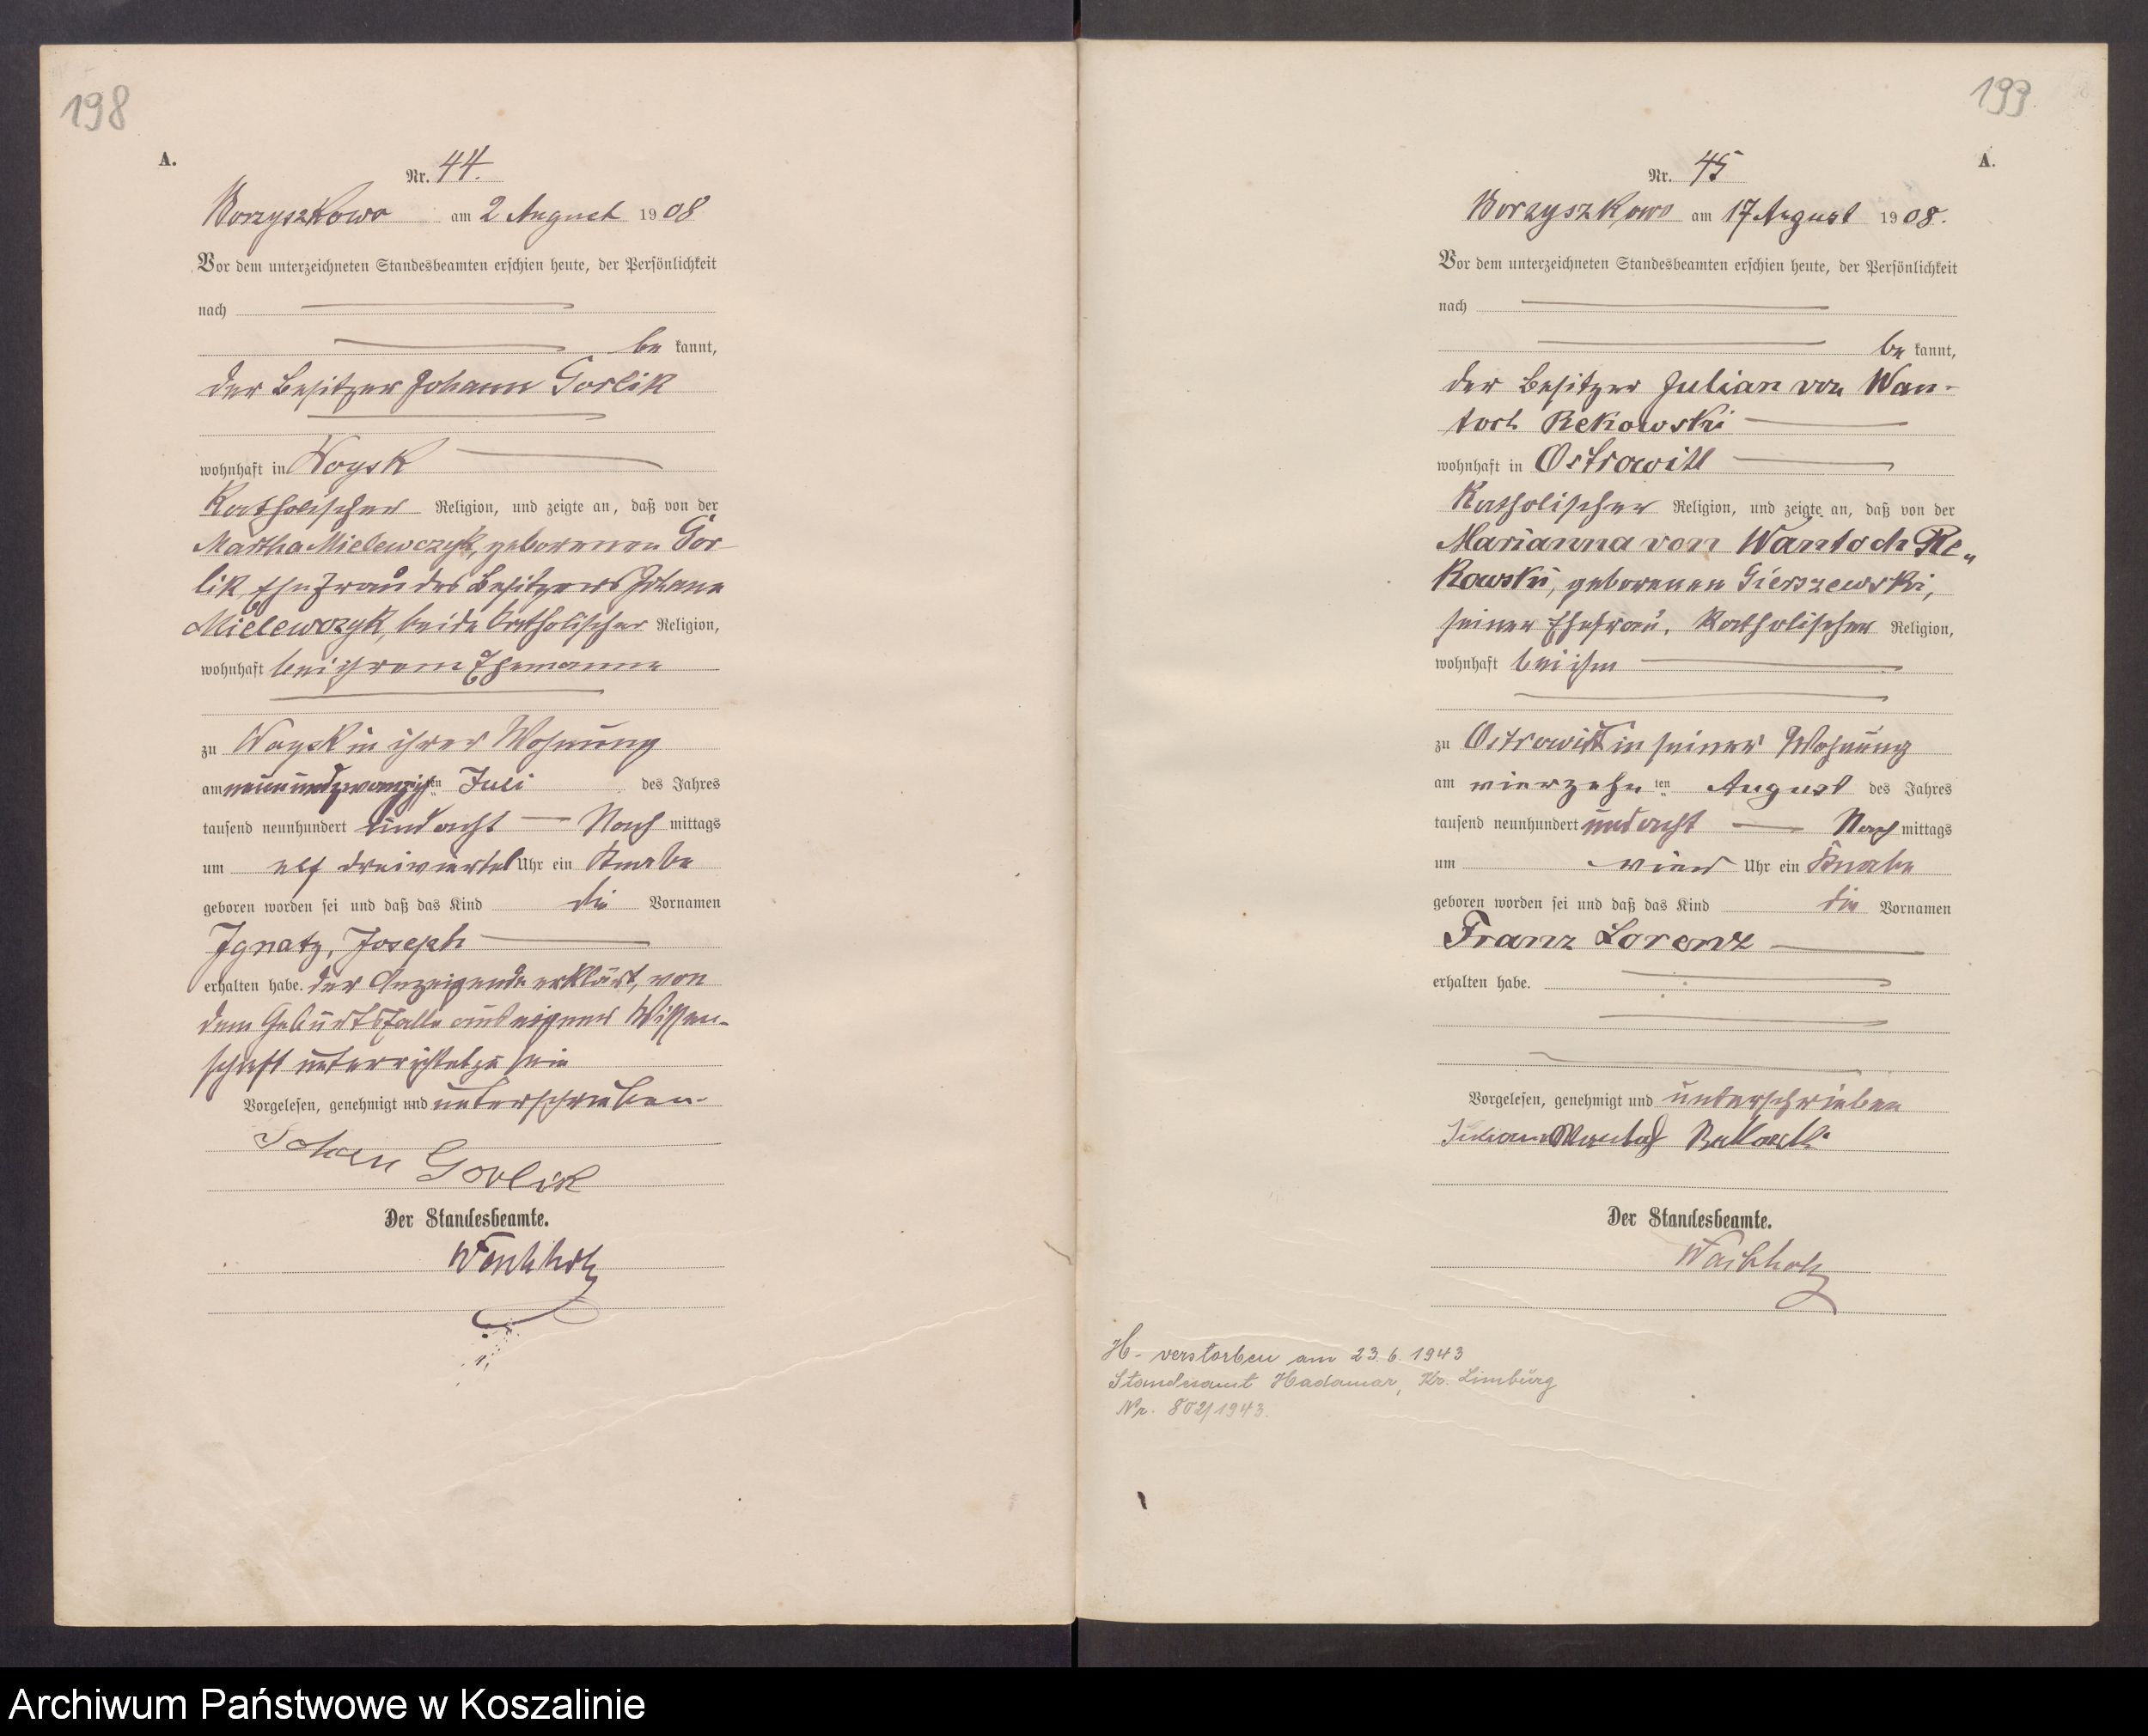 198
A.
Nr. 44.
Borzyszkowo am 2 August 1908
Vor dem unterzeichneten Standesbeamten erschien heute, der Persönlichkeit
nach
be kannt,
der Besitzer Johann Gorlik
wohnhaft in Woysk
Katholischer Religion, und zeigte an, daß von der
Martha Mielewczyk, geborenen Gor
lik, Ehefrau des Besitzers Johann
Mielewczyk, beide katholischer Religion,
wohnhaft bei ihrem Ehemanne
zu Woysk in ihrer Wohnung
am neunundzwanzigsten Juli des Jahres
tausend neunhundert und acht Nach mittags
um elf dreiviertel Uhr ein Knabe
geboren worden sei und daß das Kind die Vornamen
Ignatz, Joseph
erhalten habe. Der Anzeigende erklärt, von
dem Geburtsfalle aus eigener Wissen-
schaft unterrichtet zu sein
Vorgelesen, genehmigt und unterschrieben.
Johan Gorlik
Der Standesbeamte.
193
A.
Nr. 45
Borzyszkowo am 17 August 1908.
Vor dem unterzeichneten Standesbeamten erschien heute, der Persönlichkeit
nach
be kannt,
der Besitzer Julian von Wan-
toch Rekowski
wohnhaft in Ostrowitt
Katholischer Religion, und zeigte an, daß von der
Marianna von Wantoch Re-
kowski, geborenen Gierszewski,
seiner Ehefrau, Katholischer Religion,
wohnhaft bei ihm
zu Ostrowitt in seiner Wohnung
am vierzehn ten August des Jahres
tausend neunhundert und acht Nach mittags
um vier Uhr ein Knabe
geboren worden sei und daß das Kind die Vornamen
Franz Lorenz
erhalten habe.
Vorgelesen, genehmigt und unterschrieben
Julian Wantoch Rekowski
Der Standesbeamte.
H. verstorben am 23.6.1943
Standesamt Hadamar, Kr. Limburg
Nr. 802/1943.
Archiwum Państwowe w Koszalinie